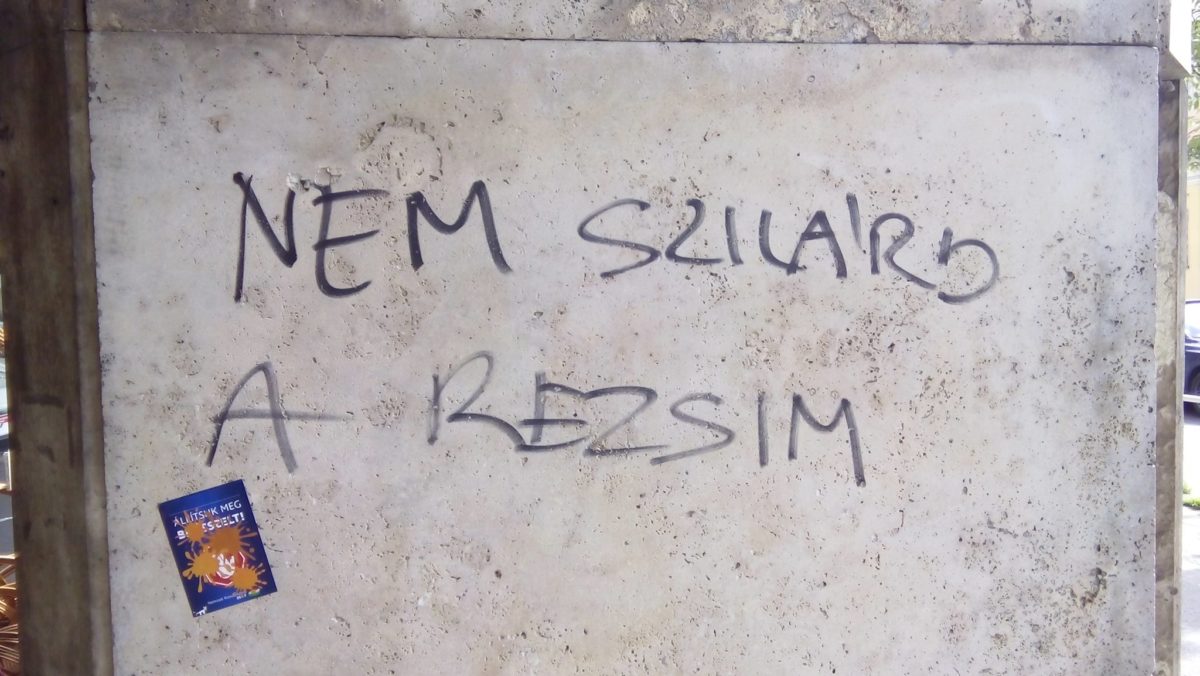 NEM SZILÁRD
A REZSIM
ÁLLÍTSUK MEG